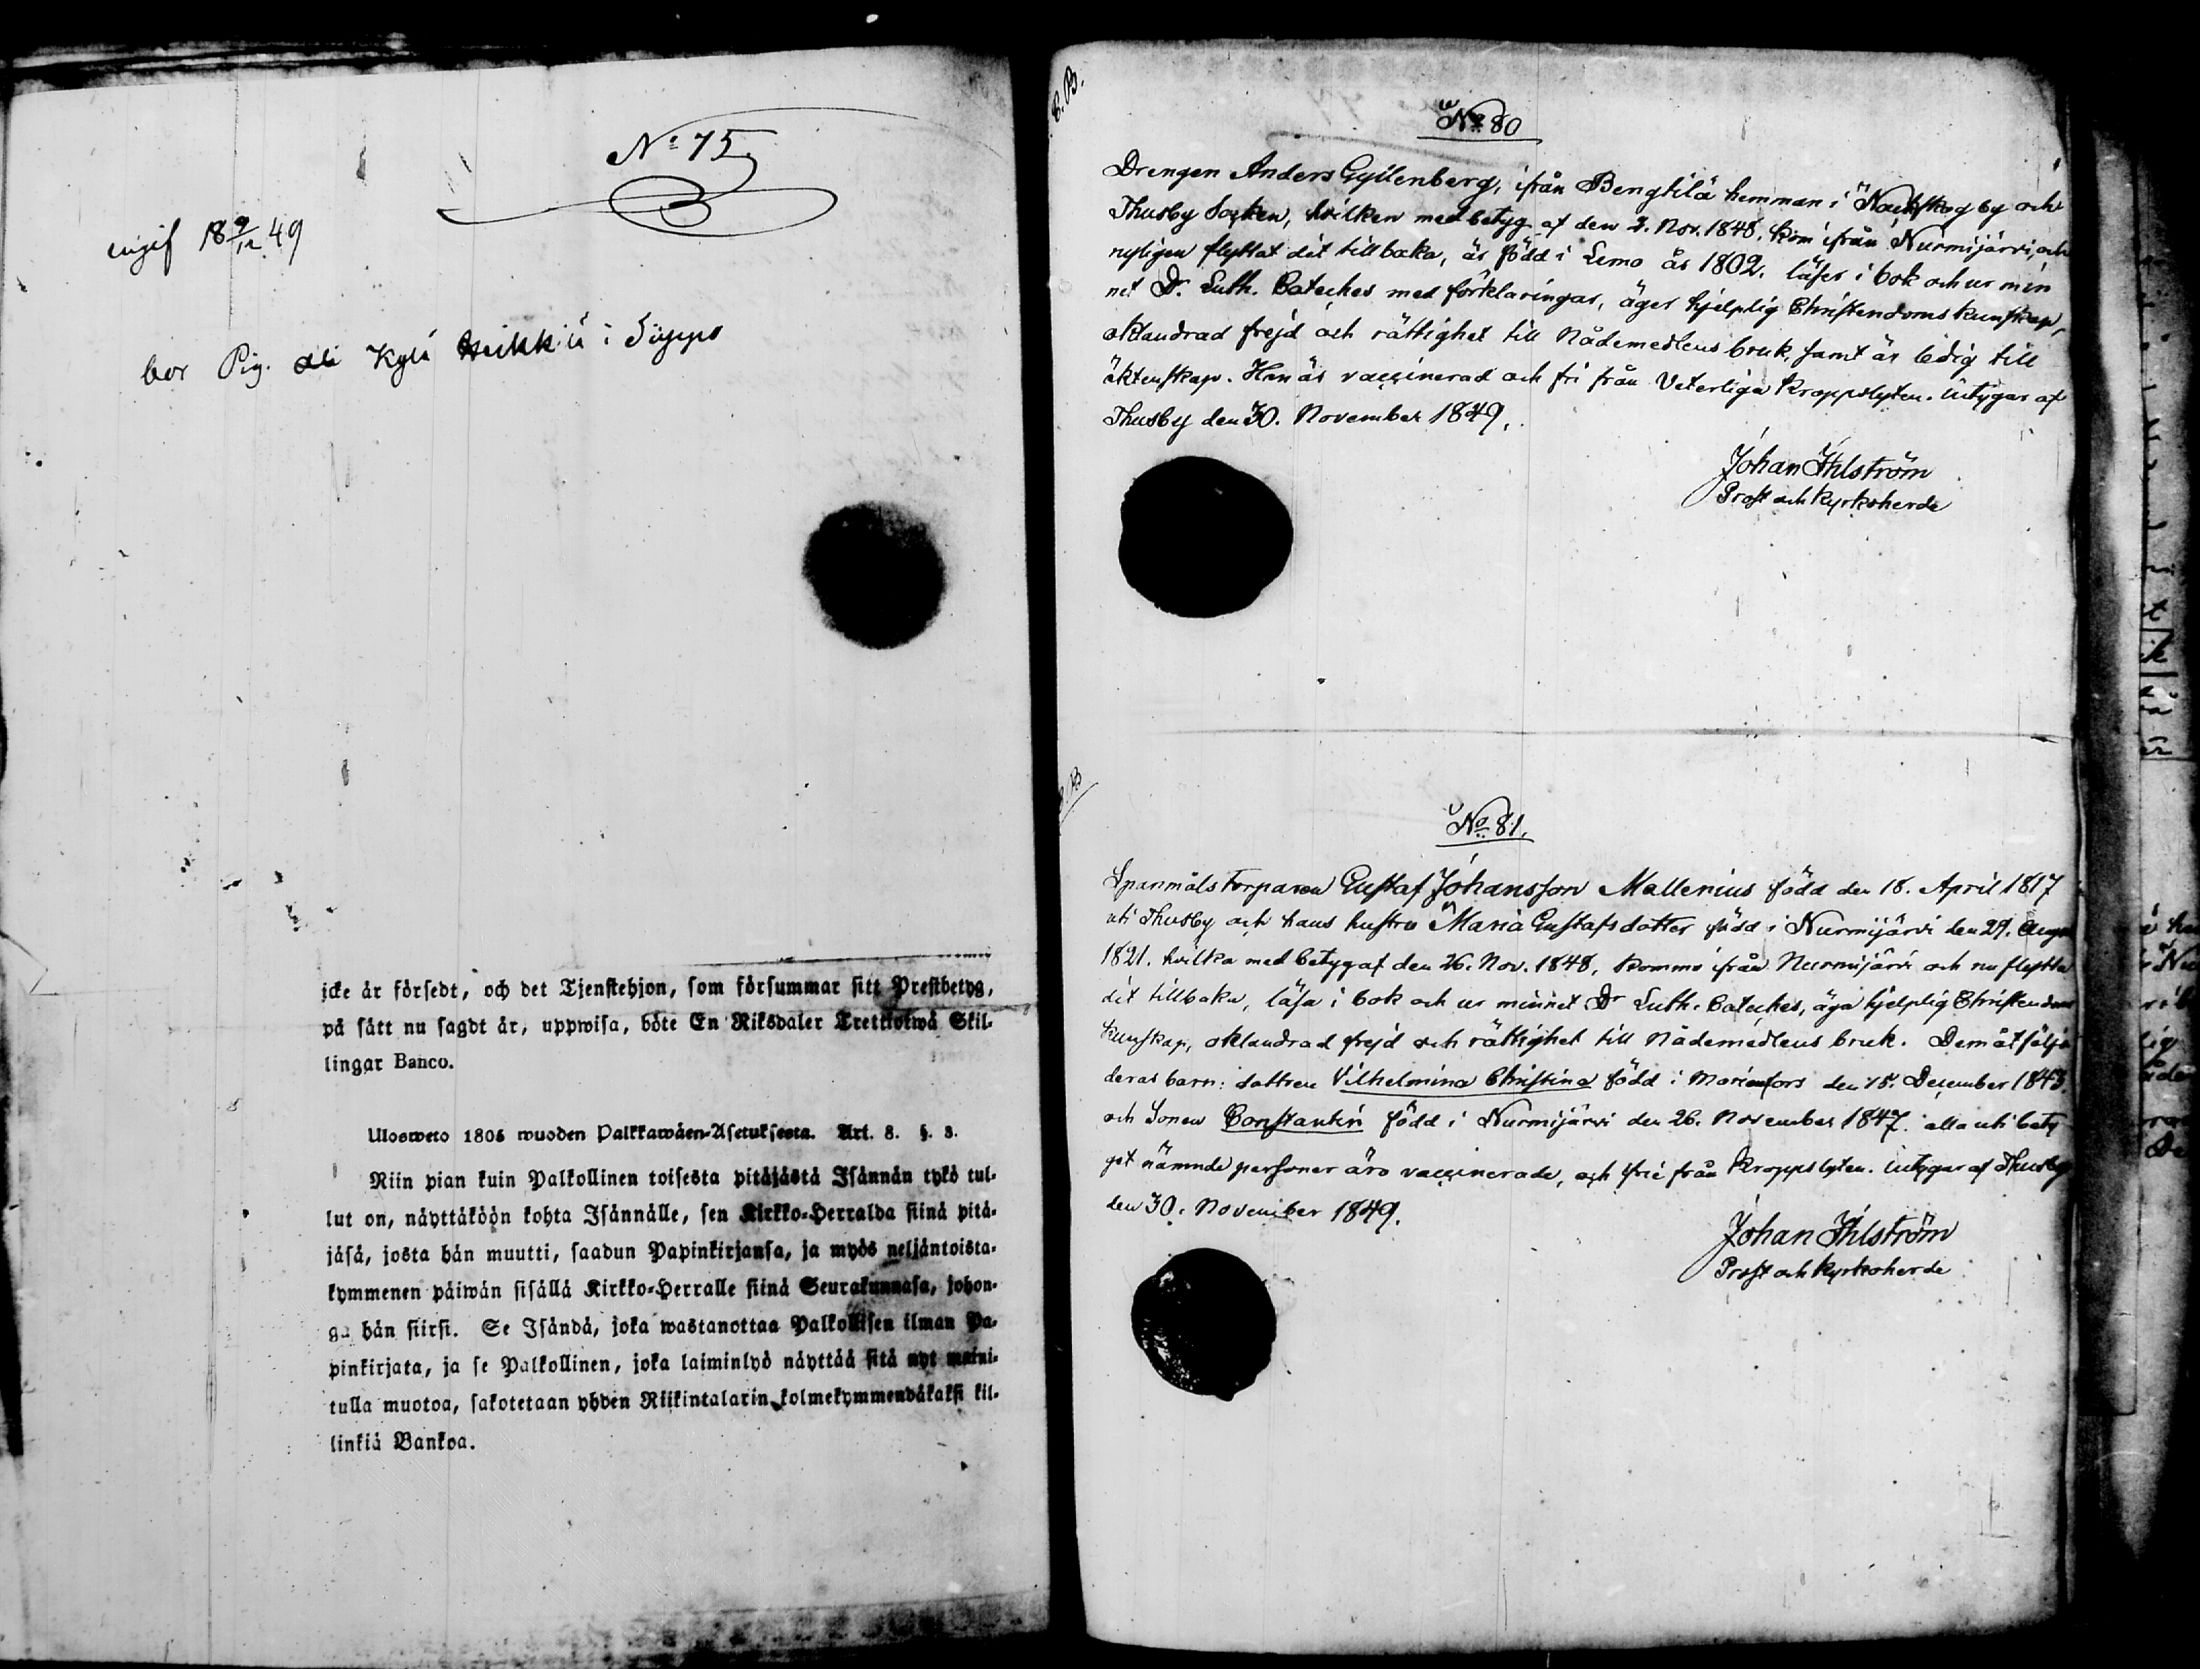 No 75
ingif 18 9/12 49
bor Pig. Kylä Heikkilä i
icke är försedt, och det Tjenstehjon, som försummar sitt Prestbetyg,
på sätt nu sagdt är, uppwisa, böte En Riksdaler Trettiotwå Skil-
lingar Banco.
Ulosweto 1805 wuoden Palkkawäen-Asetuksesta. Art. 8. §. 3.
Niin pian kuin Palkollinen toisesta pitäjästä Isännän tykö tul-
lut on, näyttäköön kohta Isännälle, sen Kirkko-Herralda siinä pitä-
jäsä, josta hän muutti, saadun Papinkirjansa, ja myös neljäntoista-
kymmenen päiwän sisällä Kirkko-Herralle siinä Seurakunnasa, johon-
ga hän siirsi. Se Isändä, joka wastanottaa Palkollisen ilman Pa-
pinkirjata, ja se Palkollinen, joka laiminlyö näyttää sitä nyt maini-
tulla muotoa, sakotetaan yhden Riikintalarin kolmekymmendäkaksi kil-
linkiä Bankoa.
No 80
Drengen Anders Gyllenberg, ifrån Bengtilä hemman i Nackskog by och
Thusby Socken, hvilken med betyg af den 3. Nov. 1848, kom ifrån Nurmijärvi, och
nyligen flyttat dit tillbaka, är född i Lemo år 1802, läser i bok och ur min
net Dr. Luth. Cateches med förklaringar, äger hjelplig Christendoms kunskap,
oklandrad frejd och rättighet till Nådemedlens bruk, samt är ledig till
äktenskap. Han är vaccinerad och fri från Veterliga Kroppslyten. Intygar af
Thusby den 30. November 1849.
Johan Ihlström
Prost och Kyrkoherde
No 81.
Spanmåls Torparen Gustaf Johansson Mallenius född den 18. April 1817
uti Thusby och hans hustru Maria Gustafsdotter född i Nurmijärvi den 29. Aug
1821. hvilka med betyg af den 26. Nov. 1848, kommo ifrån Nurmijärvi och nu flytta
dit tillbaka, läsa i bok och ur minnet Dr Luth. Cateches, äga hjelplig Christendoms
kunskap, oklandrad frejd och rättighet till Nådemedlens bruk. Dem åtfölja
deras barn: dottren Vilhelmina Christina född i Marienfors den 15. December 1843.
och Sonen Constantin född i Nurmijärvi den 26. November 1847. alla uti bety
get nämnde personer äro vaccinerade, och frie från Kroppslyten. Intygar af Thusby
den 30. November 1849.
Johan Ihlström
Prost och Kyrkoherde